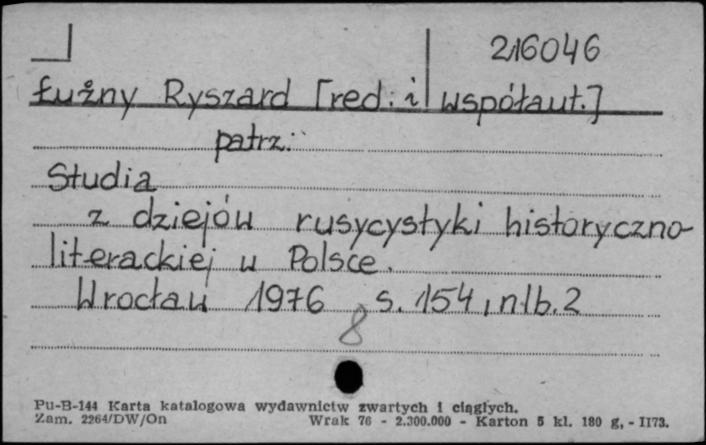 216046
Łużny Ryszard [red. i współaut.]
patrz:
Studia
z dziejów rusycystyki historyczno-
literackiej w Polsce.
Wrocław 1976 s. 154, nlb. 2
8
Pu-B-144 Karta katalogowa wydawnictw zwartych i ciągłych.
Zam. 2264/DW/On Wrak 76 - 2.300.000 - Karton 5 kl. 180 g, - II73.